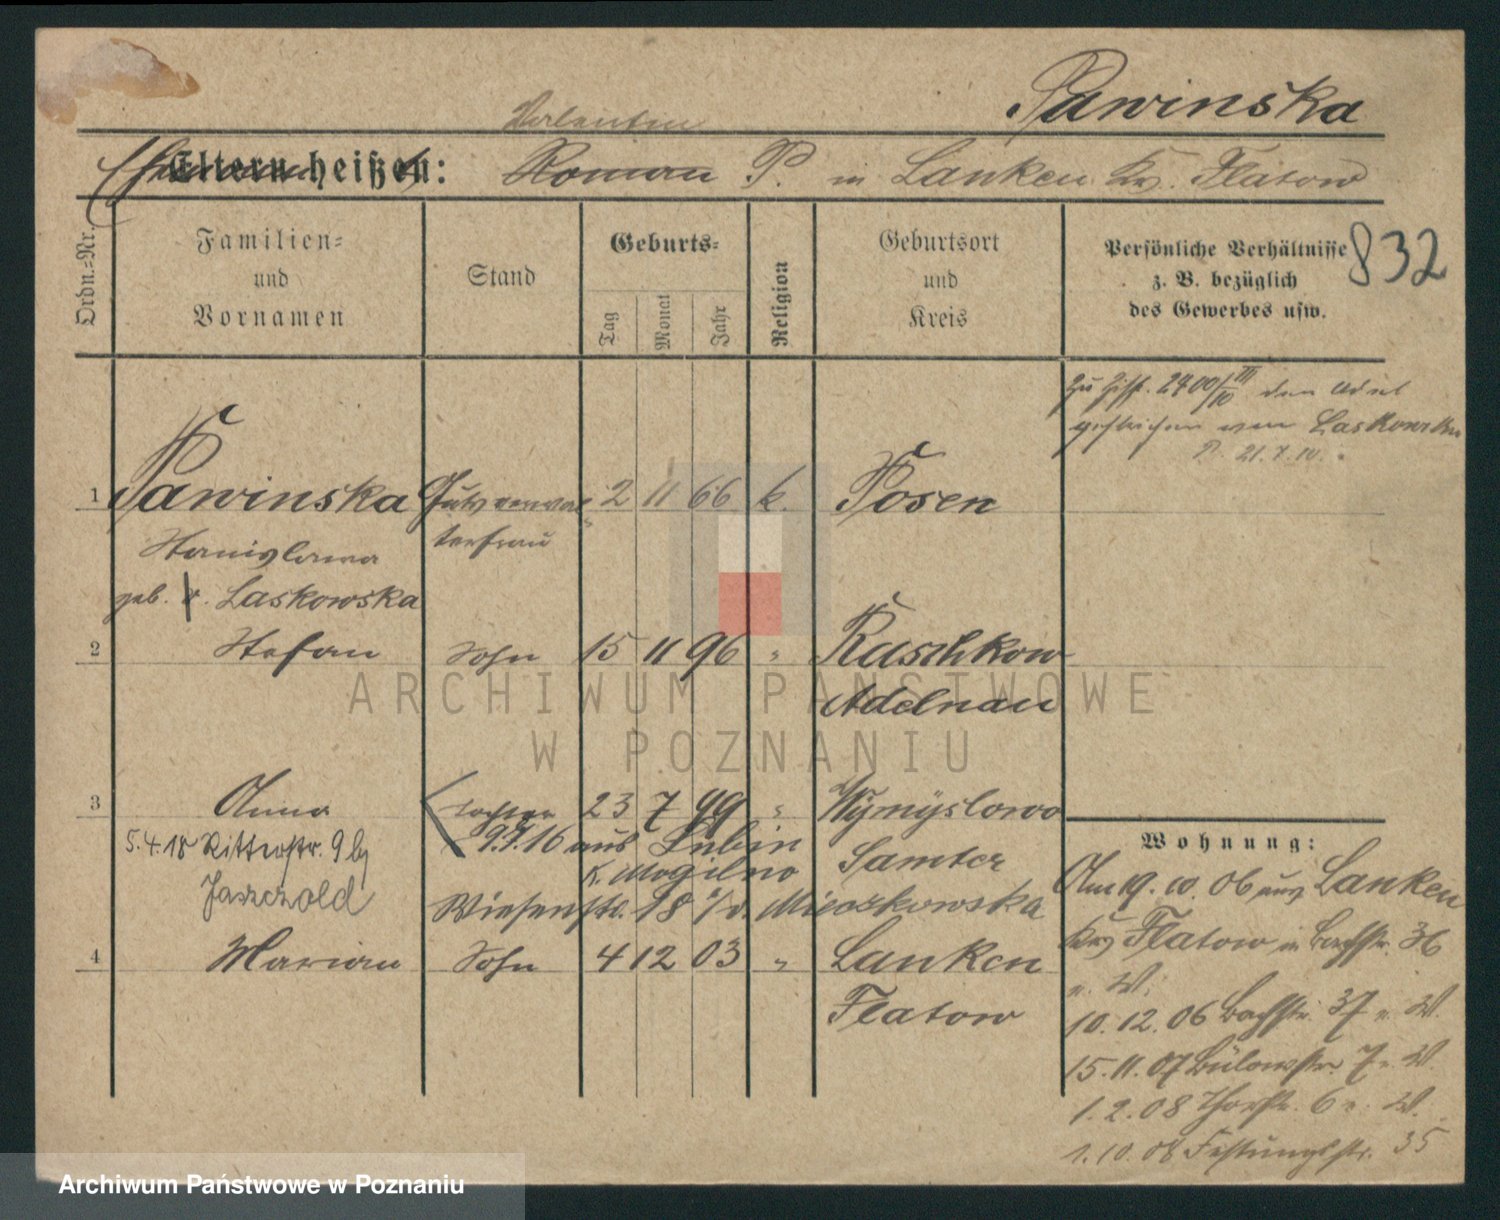 Pawinska
Valentin
Eltern heißen: Roman P. in Lanken Kr. Flatow
832
Ordn.-Nr.
Familien-
und
Vornamen
Stand
Geburts-
Tag
Monat
Jahr
Religion
Geburtsort
und
Kreis
Persönliche Verhältnisse
z. B. bezüglich
des Gewerbes usw.
2400/III 10 den Adel
gestrichen von Laskowska
21.7.10.
1 Pawinska Gutsverwal- 2 11 66 k. Posen
Stanislawa terfrau
geb. v. Laskowska
2 Stefan Sohn 15 11 96 " Raschkow
Adelnau
3 Anna Tochter 23 7 99 " Wymyslowo
5.4.18 Ritterstr. 9 bj 9.9.16 aus Lubin Samter
Jaszczold K. Mogilno
Wiesenstr. 18 Mieczkowska
4 Marian Sohn 4 12 03 " Lanken
Flatow
Wohnung:
Am 19.10.06 aus Lanken
Krs Flatow in Bachstr. 36
n. W.
10.12.06 Bachstr. 37 n. W.
15.11.07 Bülowstr. 7 n. W.
1.2.08 Thorstr. 6 n. W.
1.10.08 Festungsstr. 35
ARCHIWUM PAŃSTWOWE
W POZNANIU
Archiwum Państwowe w Poznaniu